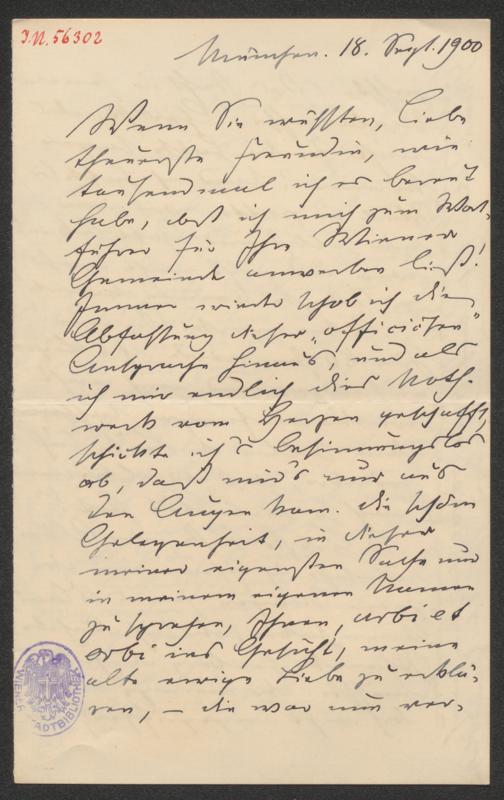 J.N. 56302
München. 18. Sept. 1900
Wenn Sie wüßten, liebe
theuerste Freundin, wie
tausendmal ich es bereut
habe, daß ich mich zum Wort-
führer für Ihre Wiener
Gemeinde anwerben ließ!
Immer wieder schob ich die
Abfassung dieser „officiösen"
Ansprache hinaus, und als
ich mir endlich dies Noth-
werk vom Herzen geschafft,
schickte ich's besinnungslos
ab, daß mir's nur aus
den Augen kam. Die schöne
Gelegenheit, in dieser
meiner eigensten Sache und
in meinem eigenen Namen
zu sprechen, Ihnen, urbi et
orbi ins Gesicht, meine
alte ewige Liebe zu erklä-
ren, – die war nun ver-
WIENER STADTBIBLIOTHEK